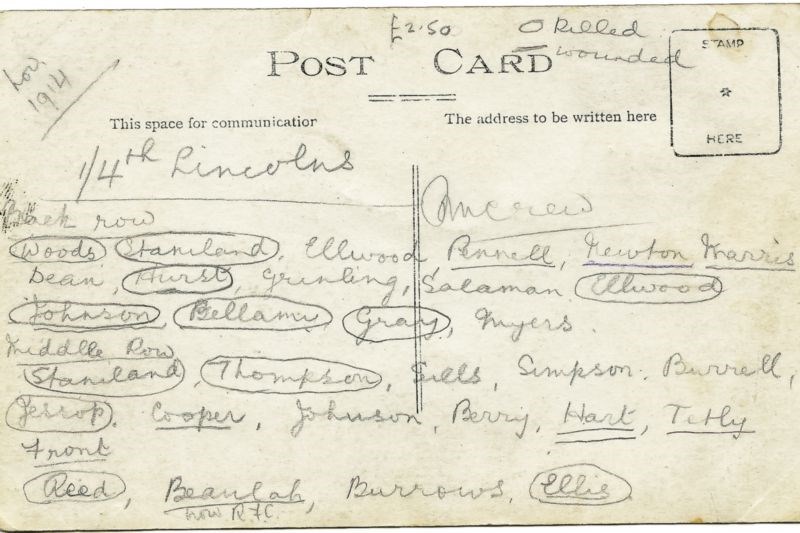 £2.50
O Killed
— wounded
Nov.
1914
POST CARD
STAMP
HERE
This space for communication
The address to be written here
1/4th Lincolns
Back row
Woods Staniland, Ellwood Pennell, Newton Marris
Dean, Hurst, Grinling, Salaman Ellwood
Johnson, Bellamy, Gray, Myers.
Middle Row
Staniland, Thompson, Sills, Simpson. Burrell,
Jessop. Cooper, Johnson, Berry, Hart, Tetly
Front
Reed, Beaulah, Burrows, Ellis
now R.F.C.